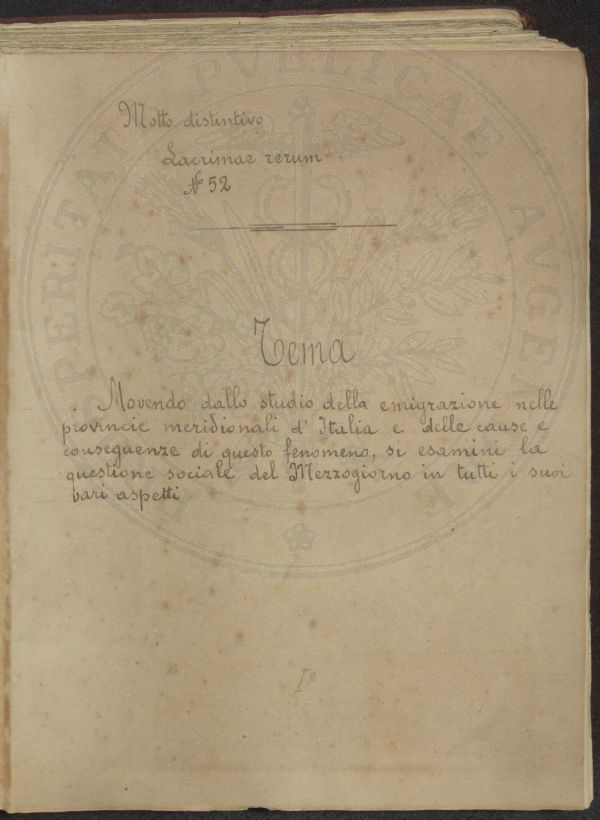 Motto distintivo
Lacrimae rerum
N° 52
Tema
Movendo dallo studio della emigrazione nelle
provincie meridionali d'Italia e delle cause e
conseguenze di questo fenomeno, si esamini la
questione sociale del Mezzogiorno in tutti i suoi
vari aspetti
PUBLICAE
AUGE